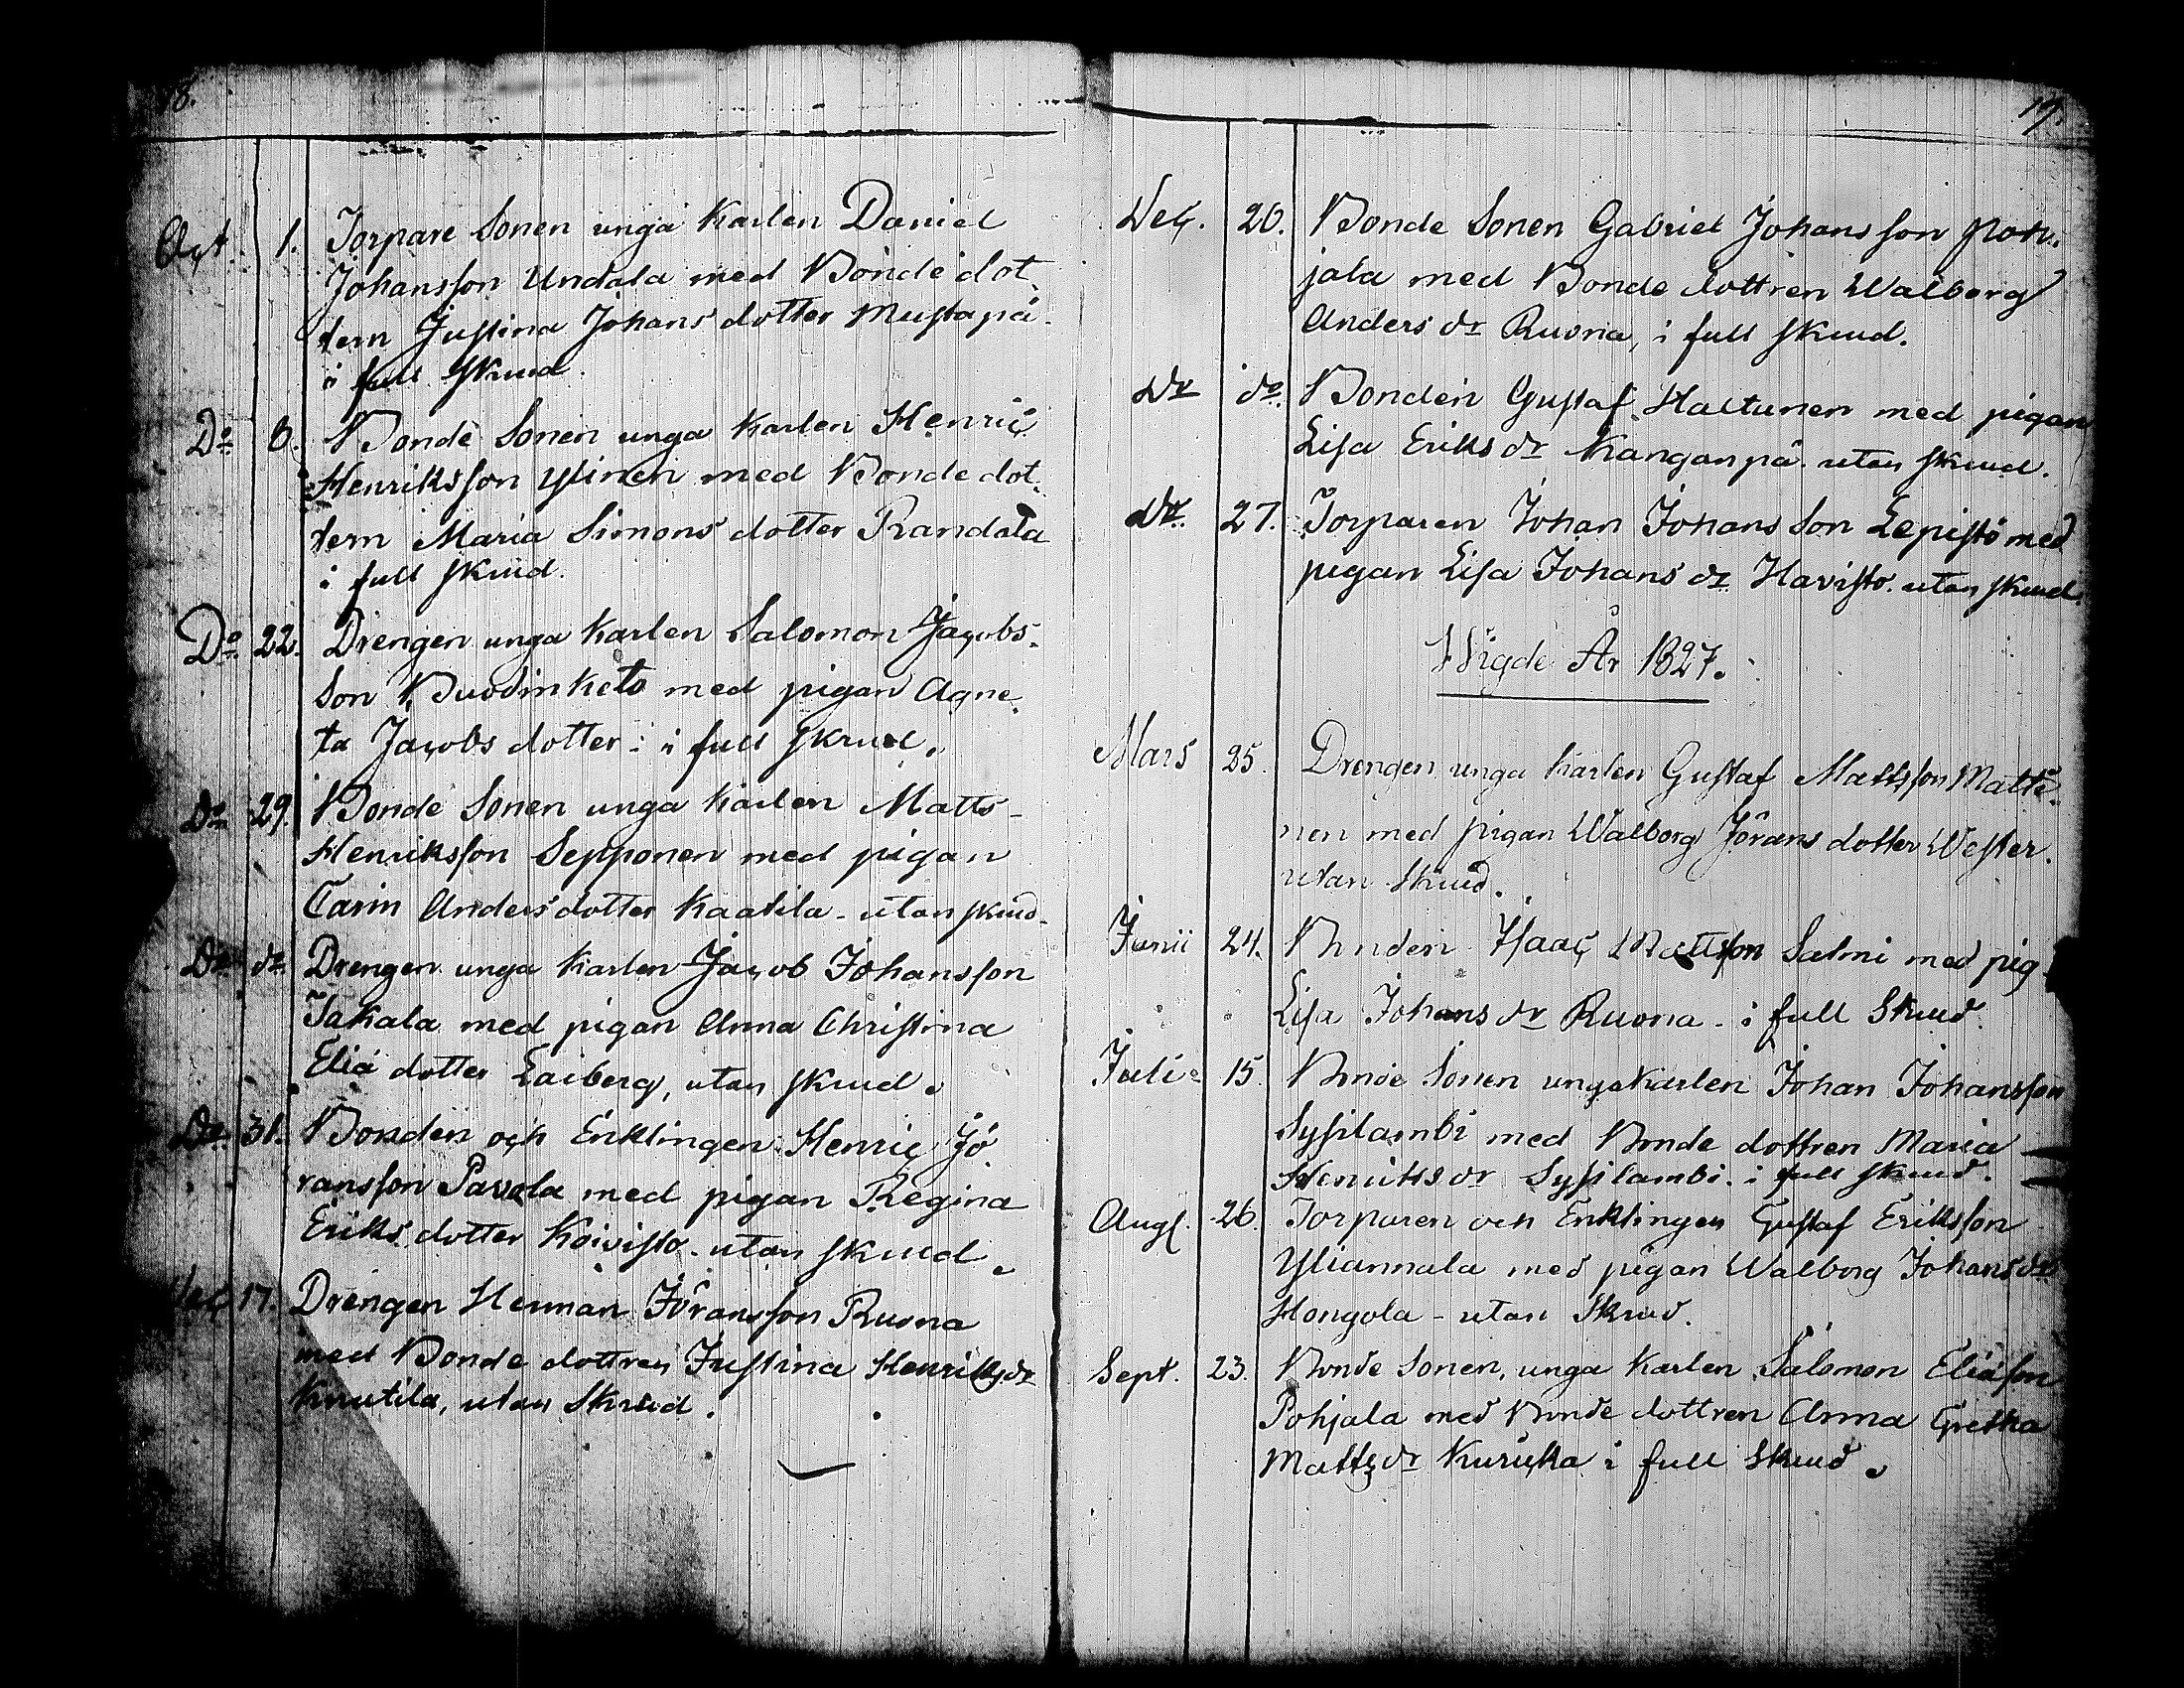 18.
Oct. 1. Torpare Sonen unga Karlen Daniel
Johansson Undala med Bonde dot
tern Justina Johans dotter Mustapä
i full Skrud.
Do 8. Bonde Sonen unga Karlen Henric
Henriksson Ylinen med Bonde dot
tern Maria Simons dotter Randala
i full skrud.
Do 22. Drengen unga Karlen Salomon Jacobs
son med pigan Agne
ta Jacobs dotter i full skrud.
Do 29. Bonde Sonen unga Karlen Matts
Henriksson Sepponen med pigan
Carin Anders dotter Kaatila - utan skrud
Do do Drengen unga Karlen Jacob Johansson
Takala med pigan Anna Christina
Eliæ dotter Laiberg, utan skrud.
Do 31. Bonden och Enklingen Henric Jö
ransson Pavola med pigan Regina
Eriks dotter Koivisto - utan skrud.
Dec 17. Drengen Herman Jöransson Ruona
med Bonde dottren Justina Henriks dr
Knutila, utan Skrud.
17.
Dec. 26. Bonde Sonen Gabriel Johansson Poh
jala med Bonde dottren Walborg
Anders dr Ruona, i full skrud.
Do do. Bonden Gustaf Haltunen med pigan
Lisa Eriks dr Kanganpä utan skrud.
Do 27. Torparen Johan Johans Son Lepistö med
pigan Lisa Johans dr Havisto utan skrud.
Wigde År 1827.
Mars 25. Drengen unga Karlen Gustaf Mattsson Matti
nen med pigan Walborg Jörans dotter Wester
utan Skrud.
Junii 24. Bonden Isaac Mattsson Salmi med pig
Lisa Johans dr Ruona - i full Skrud.
Juli 15. Bonde Sonen unga Karlen Johan Johansson
Sysilambi med Bonde dottren Maria
Henriks dr Sysilambi i full skrud.
Augs. 26. Torparen och Enklingen Gustaf Eriksson
Yliannala med pigan Walborg Johans dr
Hongola - utan Skrud.
Sept. 23. Bonde Sonen, unga Karlen Salomon Eliæson
Pohjala med Bonde dottren Anna Gretha
Matts dr Kurucka i full Skrud.